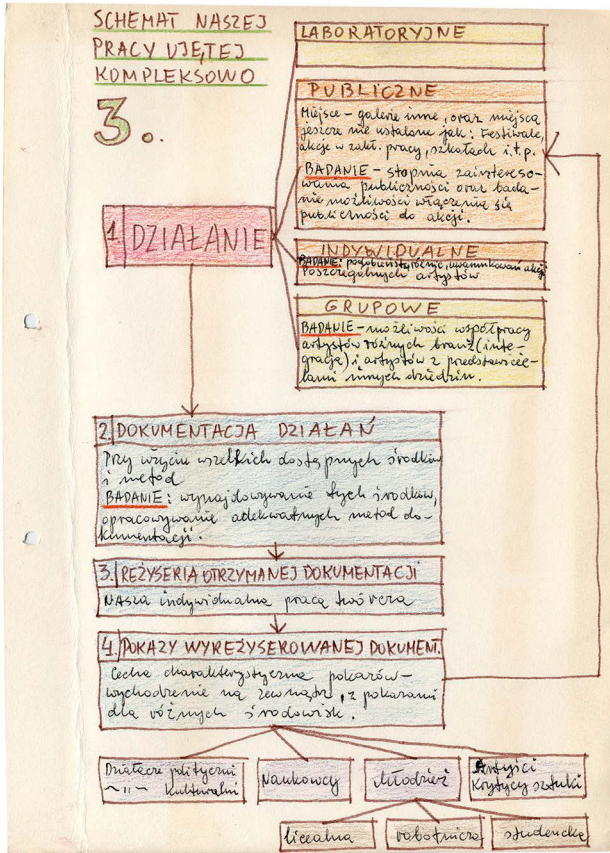 SCHEMAT NASZEJ
PRACY UJĘTEJ
KOMPLEKSOWO
3.
LABORATORYJNE
PUBLICZNE
Miejsce – galerie inne, oraz miejsca
jeszcze nie ustalone jak: Festiwale,
akcje w zakł. pracy, szkołach i.t.p.
BADANIE – stopnia zaintereso-
wania publiczności oraz bada-
nie możliwości włączenia się
publiczności do akcji.
1. DZIAŁANIE
INDYWIDUALNE
BADANIE: podobieństw, różnic, uwarunkowań akcji
Poszczególnych artystów
GRUPOWE
BADANIE – możliwości współpracy
artystów różnych branż (inte-
gracja) i artystów z przedstawicie-
lami innych dziedzin.
2. DOKUMENTACJA DZIAŁAŃ
Przy użyciu wszelkich dostępnych środków
i metod
BADANIE: wynajdowywanie tych środków,
opracowywanie adekwatnych metod do-
kumentacji.
3. REŻYSERIA OTRZYMANEJ DOKUMENTACJI
Nasza indywidualna praca twórcza
4. POKAZY WYREŻYSEROWANEJ DOKUMENT.
Cecha charakterystyczna pokazów –
wychodzenie na zewnątrz, z pokazami
dla różnych środowisk.
Działacze polityczni
~ " ~ Kulturalni
Naukowcy
Młodzież
Artyści
Krytycy sztuki
licealna
robotnicza
studencka